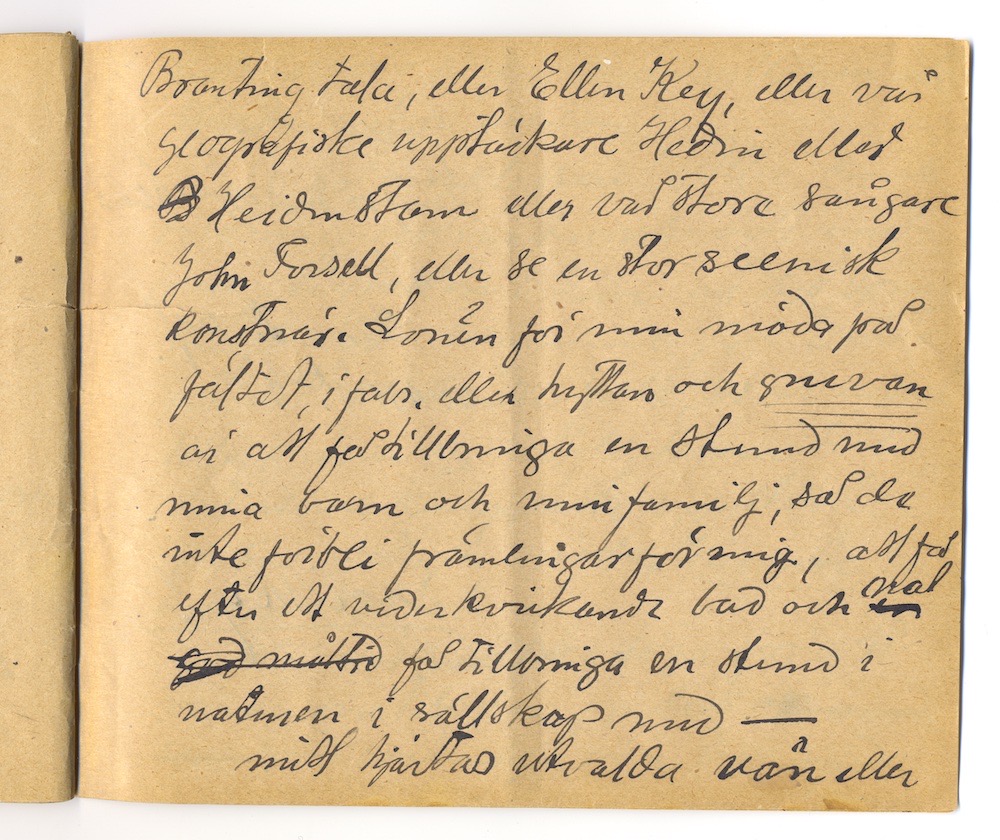 Branting tala, eller Ellen Key, eller vår
geografiske upptäckare Hedin eller
Heidenstam eller vår stora sångare
John Forsell, eller se en stor scenisk
konstnär. Lönen för min möda på
fältet, i fabr. eller hyttan och gruvan
är att få tillbringa en stund med
mina barn och min familj, så de
inte förbli främlingar för mig, att få
efter ett vederkvickande bad och mål
god måltid få tillbringa en stund i
naturen i sällskap med —
mitt hjärtas utvalda vän eller